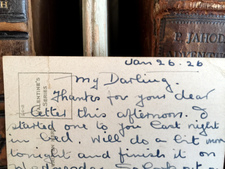 P. JAHODA
ADVENTURES
Jan 26. 26
VALENTINE'S
SERIES
My Darling
Thanks for you dear
letter this afternoon. I
started one to you last night
in bed. Will do a bit more
tonight and finish it on